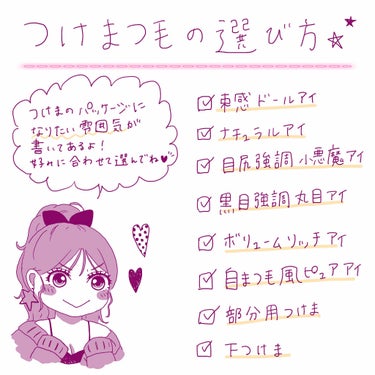 つけまつ毛の選び方
つけまのパッケージに
なりたい雰囲気が
書いてあるよ！
好みに合わせて選んでね
束感ドールアイ
ナチュラルアイ
目尻強調小悪魔アイ
黒目強調丸目アイ
ボリュームリッチアイ
自まつ毛風ピュアアイ
部分用つけま
下つけま